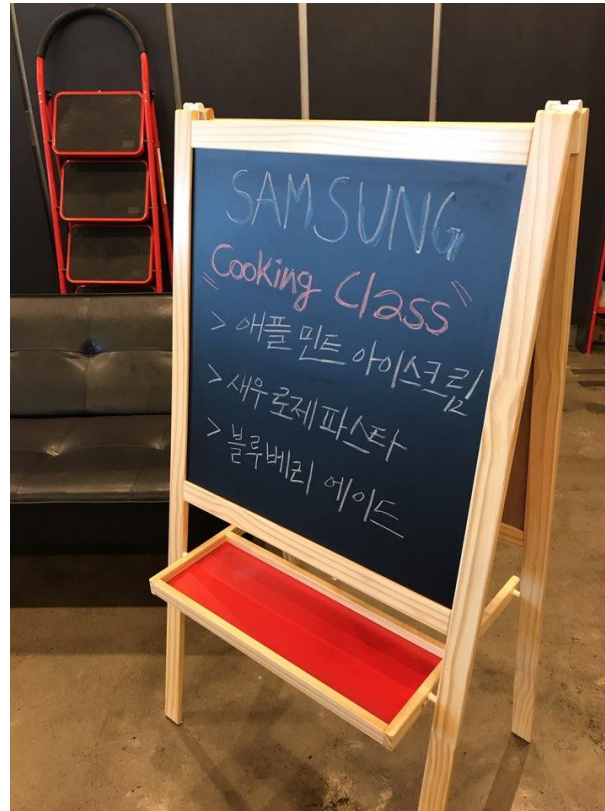 SAMSUNG
"Cooking Class"
> 애플민트 아이스크림
> 새우로제파스타
> 블루베리 에이드